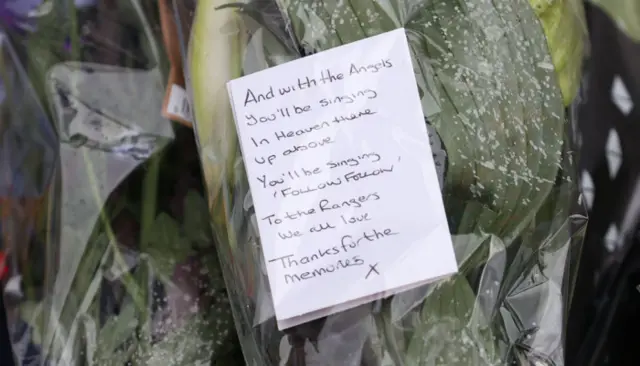 And with the Angels
You'll be singing
In Heaven there
up above
You'll be singing
'Follow Follow'
To the Rangers
We all love
Thanks for the
memories x